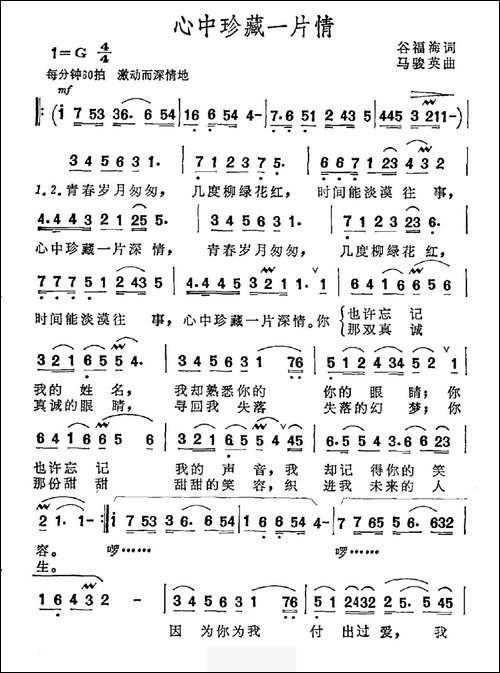 心中珍藏一片情
1=G 4/4
谷福海词
马骏英曲
每分钟60拍 激动而深情地
mf
(i 7 53 36. 6 54 | 16 6 54 4- | 7. 6 51 2 43 5 | 445 3 211 -)
3 4 5 6 3 1. | 7 1 2 3 7 5. | 6 6 7 1 23 4 3 2
1.2.青春岁月匆匆， 几度柳绿花红， 时间能淡漠往事，
4. 4 4 3 2 1 25 5. | 3 4 5 6 3 1. | 7 1 2 3 23 6.
心中珍藏一片深情， 青春岁月匆匆， 几度柳绿花红，
7 7 7 5 1 2 43 5 | 4. 4 4 5 3 211. 1 | 6 4 1 6 6 5 6
时间能淡漠往事，心中珍藏一片深情。你 也许忘记
那双真诚
3 2 1 6 5 5 4. | 3 4 5 6 3 1 76 | 5 1 2 4 34 5 2 1
我的姓名， 我却熟悉你的 你的眼睛；你
真诚的眼睛， 寻回我失落 失落的幻梦；你
6 4 1 6 6 5 6 | 3 2 1 6. 5 5 4 45 | 6. 5 5 4 3. 6 6 23
也许忘记 我的声音，我却记得你的笑
那份甜甜 甜甜的笑容，织进我未来的人
2 1. 1 - :| i 7 53 36. 6 54 | 1 6 6 54 4 - | 7 7 65 56. 632
容。 啰…… 啰……
生。
1 6 4 3 2 - | 3 4 5 6 3 1 76 | 5 1 2432 2 5. 5 45
因为你为我 付出过爱，我